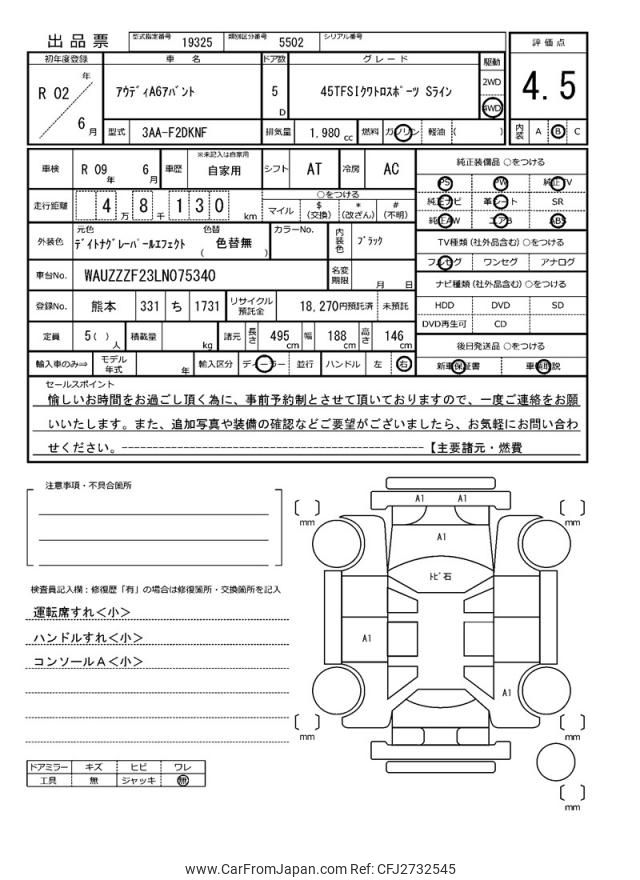 出品票 型式指定番号 19325 類別区分番号 5502 シリアル番号
初年度登録 車 名 ドア数 グレード 駆動 評価点
R 02 年 6 月 アウディA6アバント 5 D 45TFSIクワトロスポーツ Sライン 2WD 4WD 4.5
型式 3AA-F2DKNF 排気量 1.980 cc 燃料 ガソリン 軽油 ( ) 内装 A B C
車検 R 09 年 6 月 車歴 ※未記入は自家用 自家用 シフト AT 冷房 AC 純正装備品 ○をつける
PS PW 純正TV
走行距離 4 万 8 千 1 3 0 km ○をつける
マイル $ (交換) * (改ざん) # (不明)
純正ナビ 革シート SR
純正AW エアB ABS
外装色 元色 デイトナグレーパールエフェクト 色替 ( 色替無 ) カラーNo. 内装色 ブラック
TV種類 (社外品含む) ○をつける
フルセグ ワンセグ アナログ
車台No. WAUZZZF23LN075340 名変期限 月 日
ナビ種類 (社外品含む) ○をつける
登録No. 熊本 331 ち 1731 リサイクル預託金 18,270円預託済 未預託
HDD DVD SD
DVD再生可 CD
定員 5( ) 人 積載量 kg 諸元 長さ 495 cm 幅 188 cm 高さ 146 cm
後日発送品 ○をつける
輸入車のみ⇒ モデル年式 年 輸入区分 ディーラー 並行 ハンドル 左 右
新車保証書 車輌取説
セールスポイント
愉しいお時間をお過ごし頂く為に、事前予約制とさせて頂いておりますので、一度ご連絡をお願
いいたします。また、追加写真や装備の確認などご要望がございましたら、お気軽にお問い合わ
せください。-------------------------------------------【主要諸元・燃費
注意事項・不具合箇所
検査員記入欄：修復歴「有」の場合は修復箇所・交換箇所を記入
運転席すれ＜小＞
ハンドルすれ＜小＞
コンソールA＜小＞
ドアミラー キズ ヒビ ワレ
工具 無 ジャッキ 無
A1 A1
[ ] mm [ ] mm
A1
トビ石
A1
A1
[ ] mm [ ] mm
[ ] mm
www.CarFromJapan.com Ref: CFJ2732545